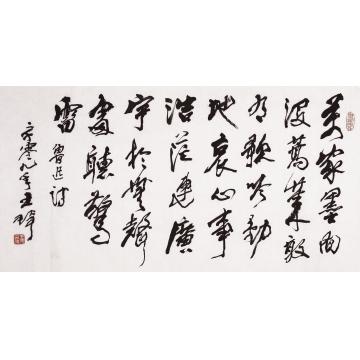 万家墨面
没蒿莱敢
有歌吟动
地哀心事
浩茫连广
宇于无声
处听惊
雷
鲁迅诗
二零零九年王琦